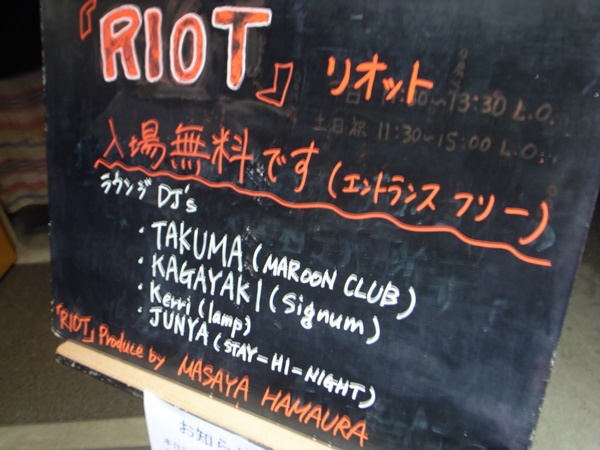 『RIOT』 リオット
日 11:30〜13:30 L.O.
土日祝 11:30〜15:00 L.O.
入場無料です(エントランス フリー)
ラウンジ DJ's
・TAKUMA (MAROON CLUB)
・KAGAYAKI (Signum)
・Kerri (lamp)
・JUNYA (STAY-HI-NIGHT)
『RIOT』 Produce by MASAYA HAMAURA
お知ら